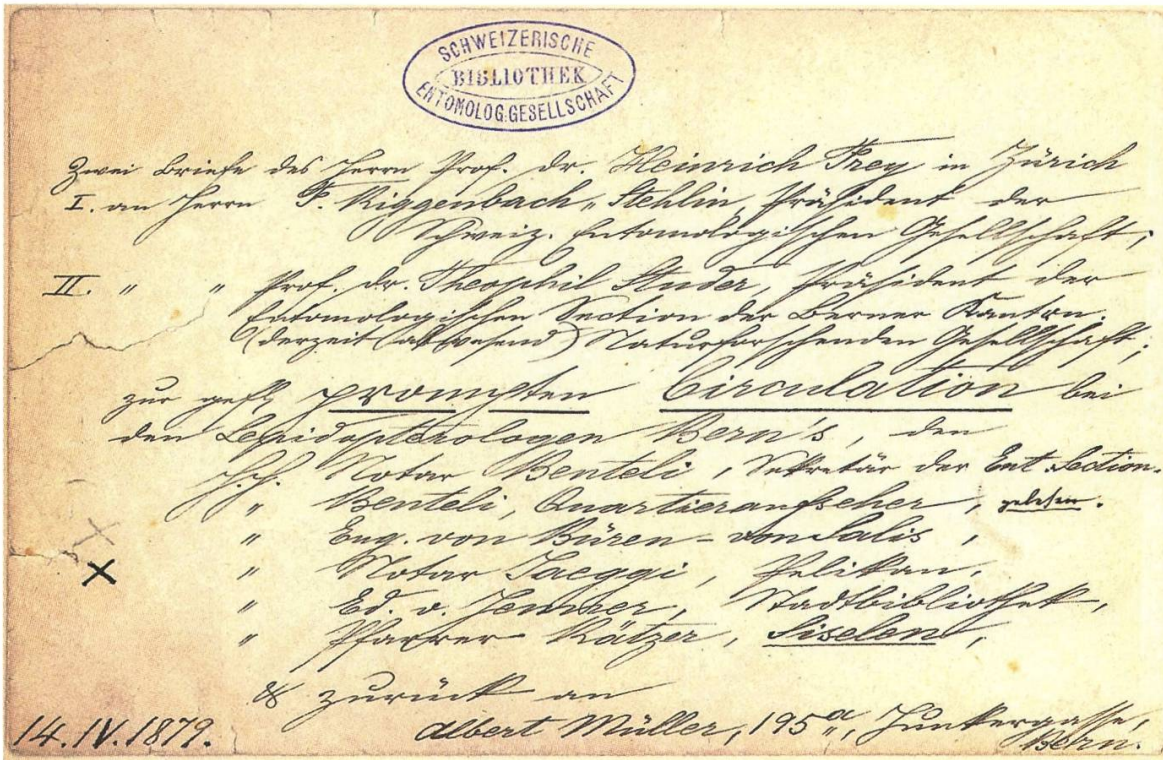 SCHWEIZERISCHE
BIBLIOTHEK
ENTOMOLOG. GESELLSCHAFT
Zwei Briefe des Herrn Prof. Dr. Heinrich Frey in Zürich
I. an Herrn F. Riggenbach-Stehlin, Präsident der
Schweiz. Entomologischen Gesellschaft;
II. " " Prof. Dr. Theophil Studer, Präsident der
Entomologischen Section der Berner Kantön.
(derzeit (abwesend) Naturforschenden Gesellschaft;
zur gefl. prompten Circulation bei
den Lepidopterologen Bern's, den
H.H. Notar Benteli, Sekretär der Ent. Section.
" Benteli, Quartieraufseher, gelesen.
" Eug. von Büren-von Salis,
" Notar Jaeggi, Pelikan,
" Ed. v. Jenner, Stadtbibliothek,
" Pfarrer Rätzer, Siselen,
& zurück an
14.IV.1879. Albert Müller, 195a, Junkergasse,
Bern.